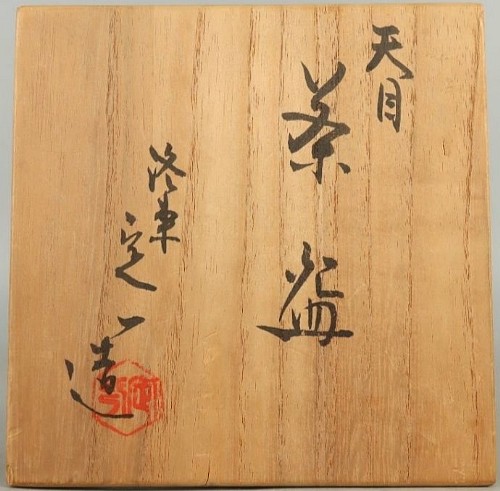 天目
茶盌
洛東
定一造